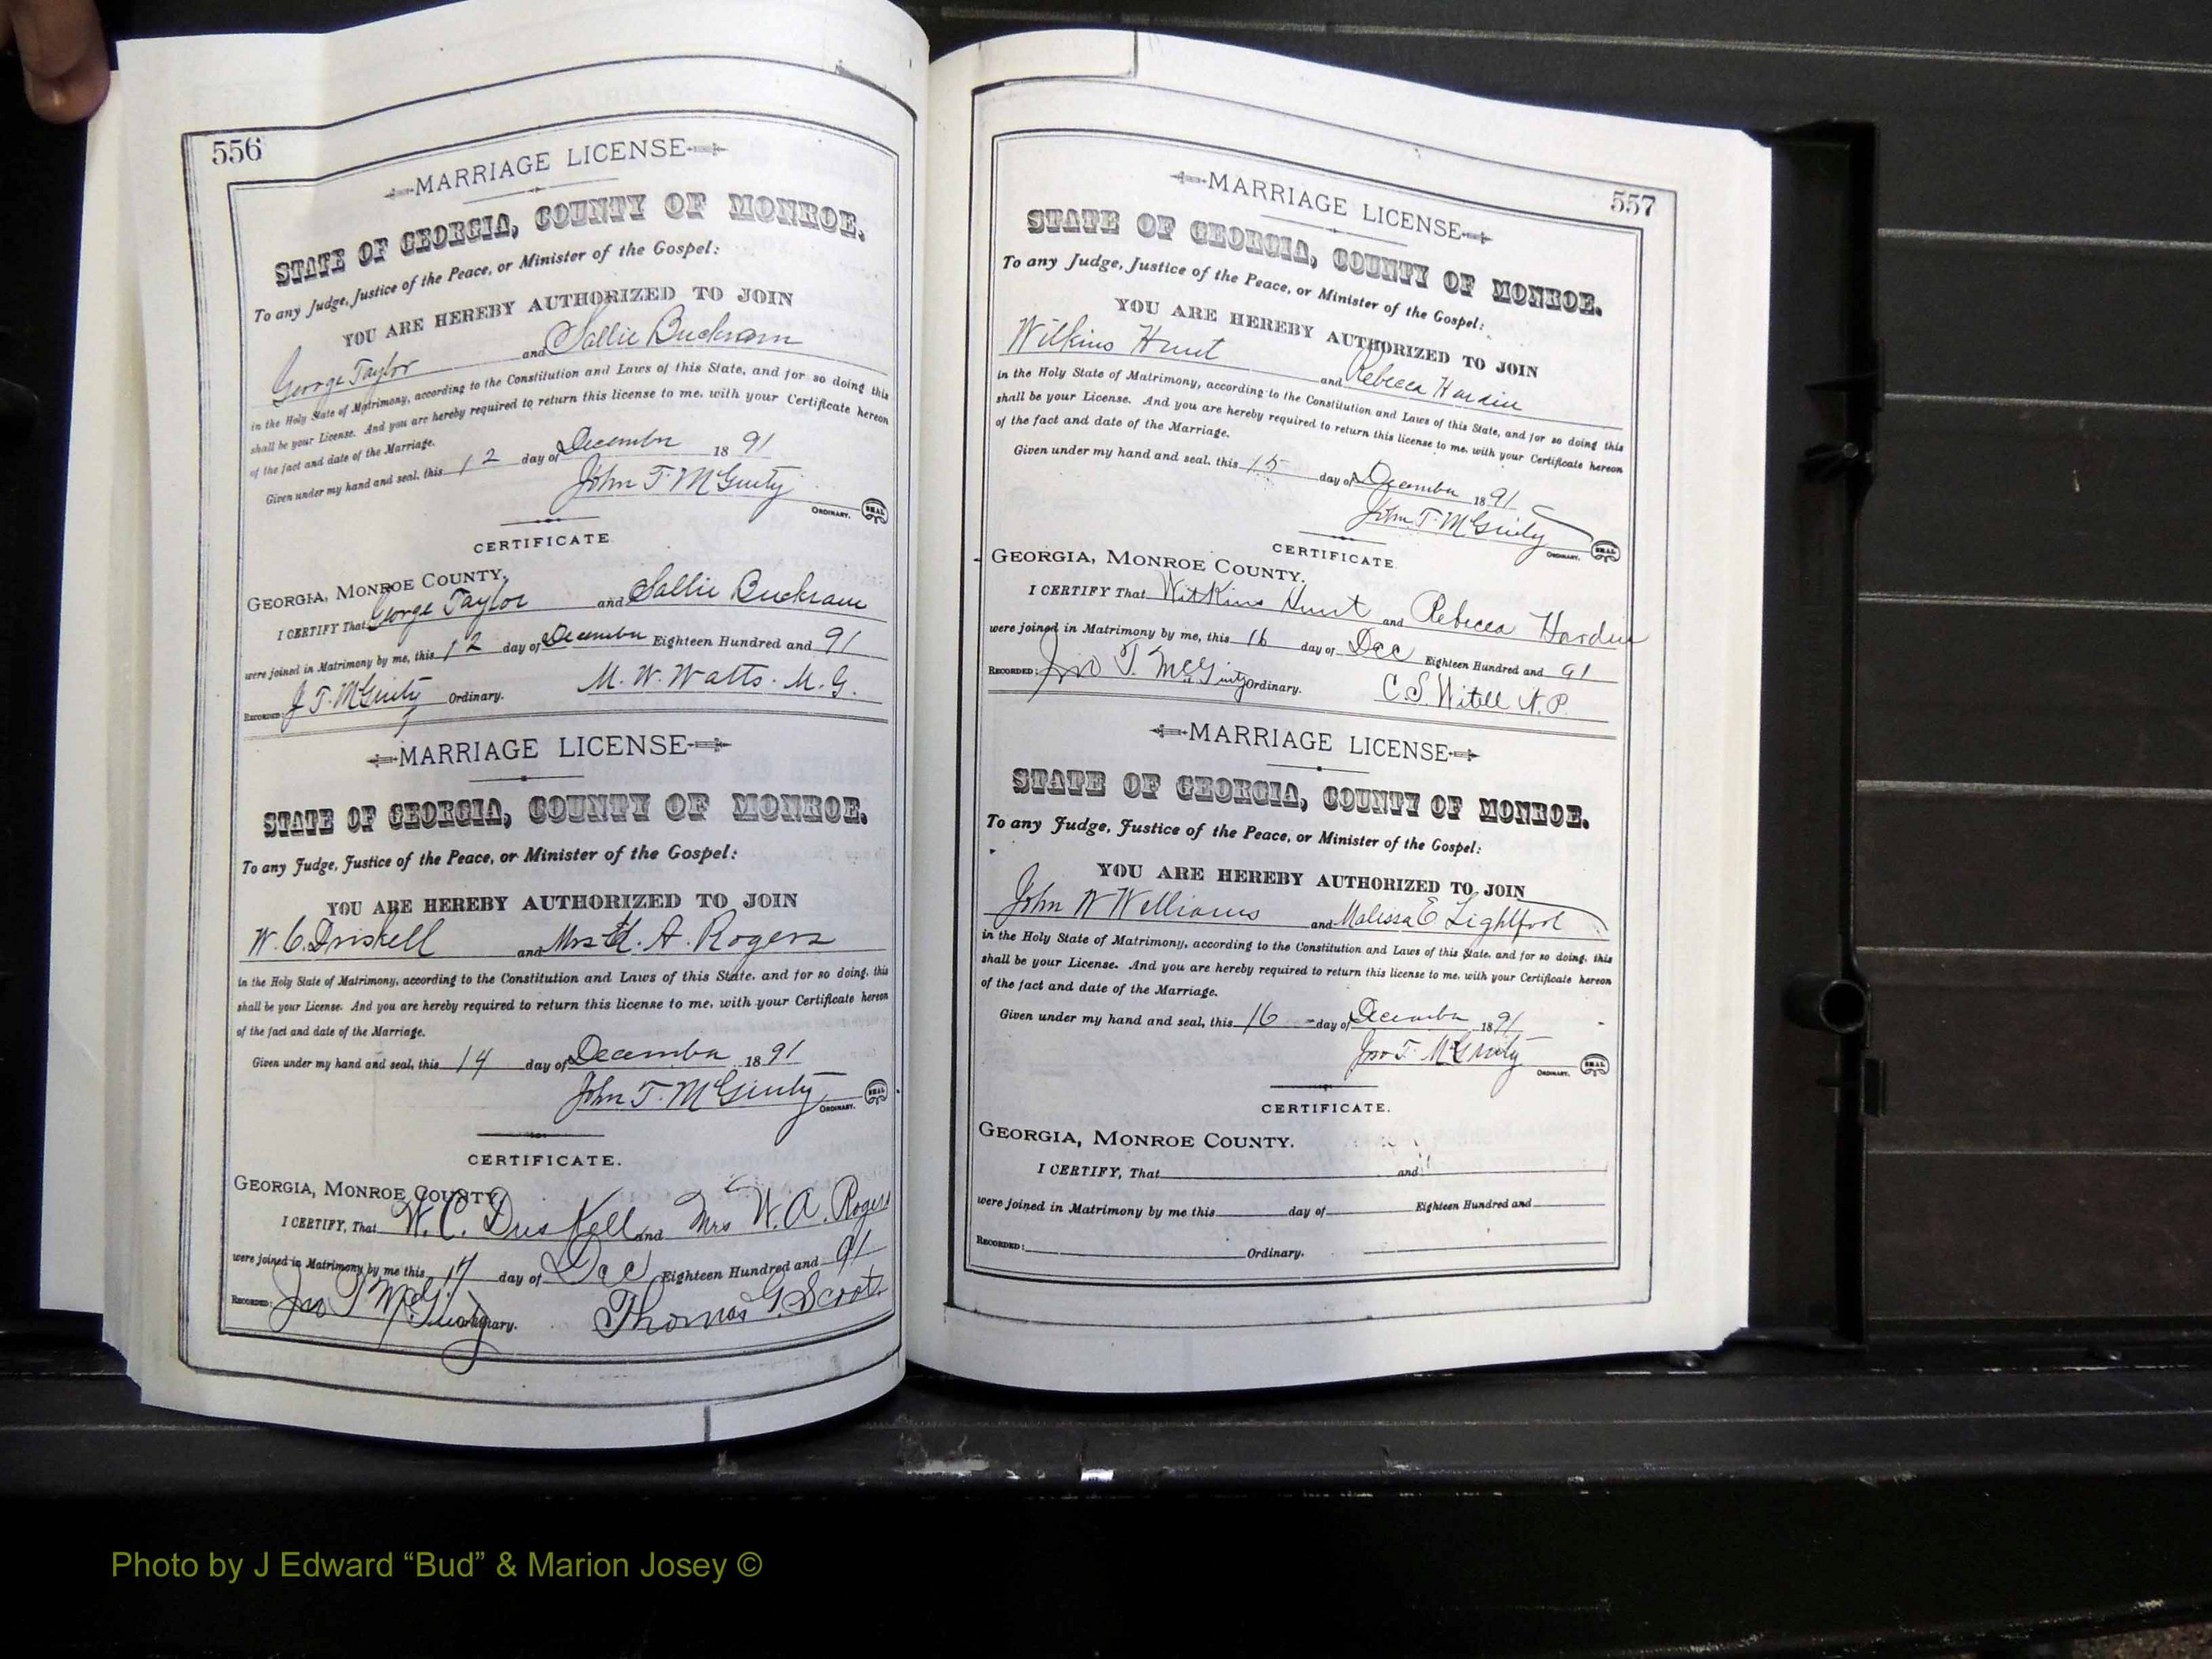 556
MARRIAGE LICENSE
STATE OF GEORGIA, COUNTY OF MONROE.
To any Judge, Justice of the Peace, or Minister of the Gospel:
YOU ARE HEREBY AUTHORIZED TO JOIN
George Taylor and Sallie Buckram
in the Holy State of Matrimony, according to the Constitution and Laws of this State, and for so doing this
shall be your License. And you are hereby required to return this license to me, with your Certificate hereon
of the fact and date of the Marriage.
Given under my hand and seal, this 12 day of December 1891
John T. McGinty
ORDINARY. SEAL
CERTIFICATE
GEORGIA, MONROE COUNTY.
I CERTIFY That George Taylor and Sallie Buckram
were joined in Matrimony by me, this 12 day of December Eighteen Hundred and 91
M. W. Watts. M.G.
RECORDED: J T. McGinty Ordinary.
MARRIAGE LICENSE
STATE OF GEORGIA, COUNTY OF MONROE.
To any Judge, Justice of the Peace, or Minister of the Gospel:
YOU ARE HEREBY AUTHORIZED TO JOIN
W. C. Driskell and Mrs A. Rogers
in the Holy State of Matrimony, according to the Constitution and Laws of this State, and for so doing, this
shall be your License. And you are hereby required to return this license to me, with your Certificate hereon
of the fact and date of the Marriage.
Given under my hand and seal, this 14 day of December 1891
John T. McGinty
ORDINARY. SEAL
CERTIFICATE.
GEORGIA, MONROE COUNTY.
I CERTIFY, That W. C. Driskell and Mrs W. A. Rogers
were joined in Matrimony by me this 17 day of Dec Eighteen Hundred and 91
RECORDED: Jno T. McGinty Ordinary. Thomas G. Scott
557
MARRIAGE LICENSE
STATE OF GEORGIA, COUNTY OF MONROE.
To any Judge, Justice of the Peace, or Minister of the Gospel:
YOU ARE HEREBY AUTHORIZED TO JOIN
Wilkins Hunt and Rebecca Hardin
in the Holy State of Matrimony, according to the Constitution and Laws of this State, and for so doing this
shall be your License. And you are hereby required to return this license to me, with your Certificate hereon
of the fact and date of the Marriage.
Given under my hand and seal, this 15 day of December 1891
John T. McGinty
ORDINARY. SEAL
CERTIFICATE
GEORGIA, MONROE COUNTY.
I CERTIFY That Wilkins Hunt and Rebecca Hardin
were joined in Matrimony by me, this 16 day of Dec Eighteen Hundred and 91
RECORDED: Jno T. McGinty Ordinary. C. S. N.P.
MARRIAGE LICENSE
STATE OF GEORGIA, COUNTY OF MONROE.
To any Judge, Justice of the Peace, or Minister of the Gospel:
YOU ARE HEREBY AUTHORIZED TO JOIN
John W Williams and Malissa E Lightfoot
in the Holy State of Matrimony, according to the Constitution and Laws of this State, and for so doing, this
shall be your License. And you are hereby required to return this license to me, with your Certificate hereon
of the fact and date of the Marriage.
Given under my hand and seal, this 16 day of December 1891
Jno T. McGinty
ORDINARY. SEAL
CERTIFICATE.
GEORGIA, MONROE COUNTY.
I CERTIFY, That and
were joined in Matrimony by me this day of Eighteen Hundred and
RECORDED: Ordinary.
Photo by J Edward “Bud” & Marion Josey ©